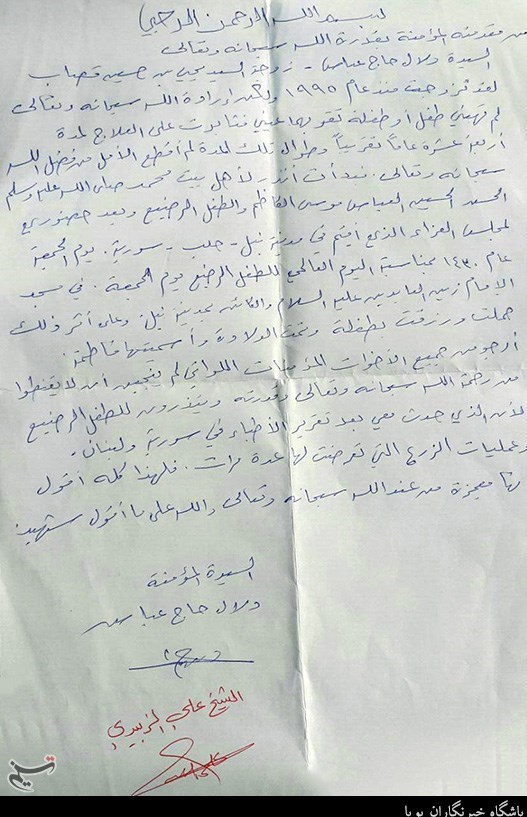 بسم الله الرحمن الرحيم
من مقدمته المؤمنة بقدرة الله سبحانه وتعالى
السيدة دلال حاج عباس - زوجة السيد يحيى بن حسين قصاب
لقد تزوجت منذ عام ١٩٩٥ ولكن إرادة الله سبحانه وتعالى
لم تهبني طفل أو طفلة تقر بها عيني فثابرت على العلاج لمدة
أربعة عشرة عاماً تقريباً وطوال تلك المدة لم أقطع الأمل من فضل الله
سبحانه وتعالى. فبدأت أنذر لأهل بيت محمد صلى الله عليه وسلم
الحسن الحسين العباس موسى الكاظم والطفل الرضيع وبعد حضوري
لمجلس العزاء الذي أقيم في مدينة نبل - حلب - سورية. يوم الجمعة
عام ١٤٣٠ بمناسبة اليوم العالمي للطفل الرضيع يوم الجمعة. في مسجد
الإمام زين العابدين عليه السلام والكائن بمدينة نبل. وعلى أثر ذلك
حملت ورزقت بطفلة وتمت الولادة وأسميتها فاطمة.
أرجو من جميع الأخوات المؤمنات اللواتي لم ينجبن أن لا يقنطوا
من رحمة الله سبحانه وتعالى وقدرته وينذرون للطفل الرضيع
لأن الذي حدث معي بعد تقرير الأطباء في سورية ولبنان.
وعمليات الزرع التي تعرضت لها عدة مرات. فلهذا كله أقول
لها معجزة من عند الله سبحانه وتعالى والله على ما أقول شهيد
السيدة المؤمنة
دلال حاج عباس
الشيخ علي الزبيدي
تسنیم
باشگاه خبرنگاران پویا